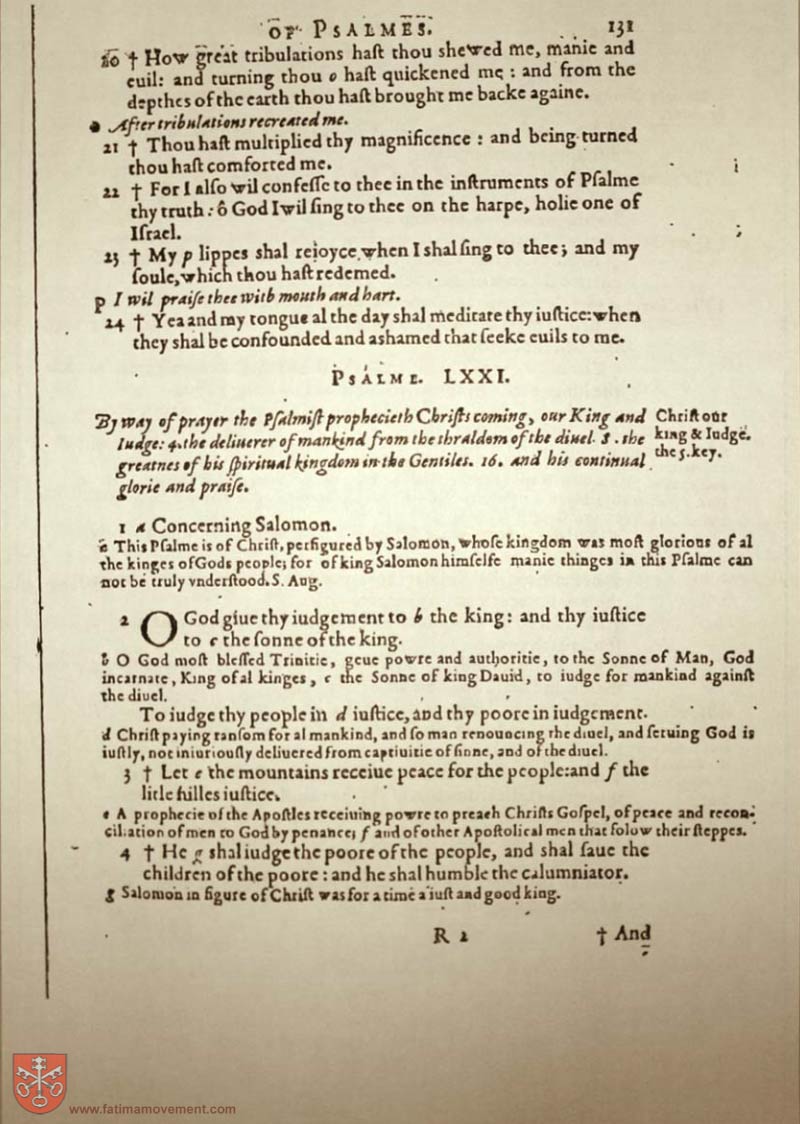 OF PSALMES. 131
20 † How great tribulations haſt thou shewed me, manie and
euil: and turning thou o haſt quickened me : and from the
depthes of the earth thou haſt brought me backe againe.
o After tribulations recreated me.
21 † Thou haſt multiplied thy magnificence : and being turned
thou haſt comforted me.
22 † For I alſo wil confeſſe to thee in the inſtruments of Pſalme
thy truth : ô God I wil ſing to thee on the harpe, holie one of
Iſrael.
23 † My p lippes shal reioyce when I shal ſing to thee; and my
ſoule, which thou haſt redemed.
p I wil praiſe thee with mouth and hart.
24 † Yea and my tongue al the day shal meditate thy iuſtice: when
they shal be confounded and ashamed that ſeeke euils to me.
PSALME. LXXI.
By way of prayer the Pſalmiſt prophecieth Chriſts coming, our King and
Iudge: 4. the deliuerer of mankind from the thraldom of the diuel. 8. the
greatnes of his ſpiritual kingdom in the Gentiles. 16. and his continual
glorie and praiſe.
Chriſt our
king & Iudge.
the 5. key.
1 a Concerning Salomon.
a This Pſalme is of Chriſt, perfigured by Salomon, whoſe kingdom was moſt glorious of al
the kinges of Gods people; for of king Salomon himſelfe manie thinges in this Pſalme can
not be truly vnderſtood. S. Aug.
2 O God giue thy iudgement to b the king: and thy iuſtice
to c the ſonne of the king.
b O God moſt bleſſed Trinitie, geue powre and authoritie, to the Sonne of Man, God
incarnate, King of al kinges, c the Sonne of king Dauid, to iudge for mankind againſt
the diuel.
To iudge thy people in d iuſtice, and thy poore in iudgement.
d Chriſt paying ranſom for al mankind, and ſo man renouncing the diuel, and ſeruing God is
iuſtly, not iniuriouſly deliuered from captiuitie of ſinne, and of the diuel.
3 † Let e the mountains receiue peace for the people: and f the
litle hilles iuſtice.
e A prophecie of the Apoſtles receiuing powre to preach Chriſts Goſpel, of peace and recon-
ciliation of men to God by penance; f and of other Apoſtolical men that folow their ſteppes.
4 † He g shal iudge the poore of the people, and shal ſaue the
children of the poore : and he shal humble the calumniator.
g Salomon in figure of Chriſt was for a time a iuſt and good king.
R 2 † And
www.fatimamovement.com